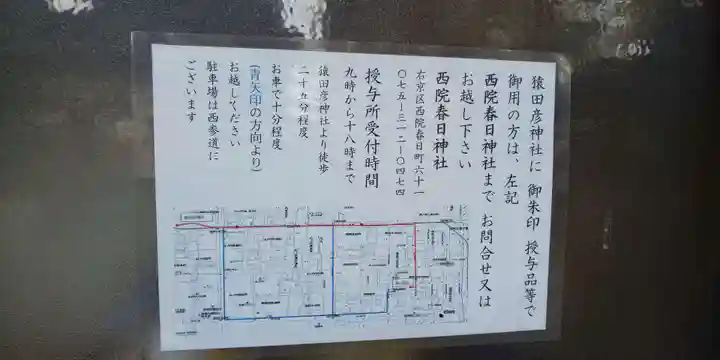 猿田彦神社に 御朱印 授与品等で
御用の方は、左記
西院春日神社まで お問合せ又は
お越し下さい
西院春日神社
右京区西院春日町六十一
〇七五ー三一二ー〇四七四
授与所受付時間
九時から十八時まで
猿田彦神社より徒歩
二十五分程度
お車で十分程度
(青矢印の方向より)
お越しください
駐車場は西参道に
ございます